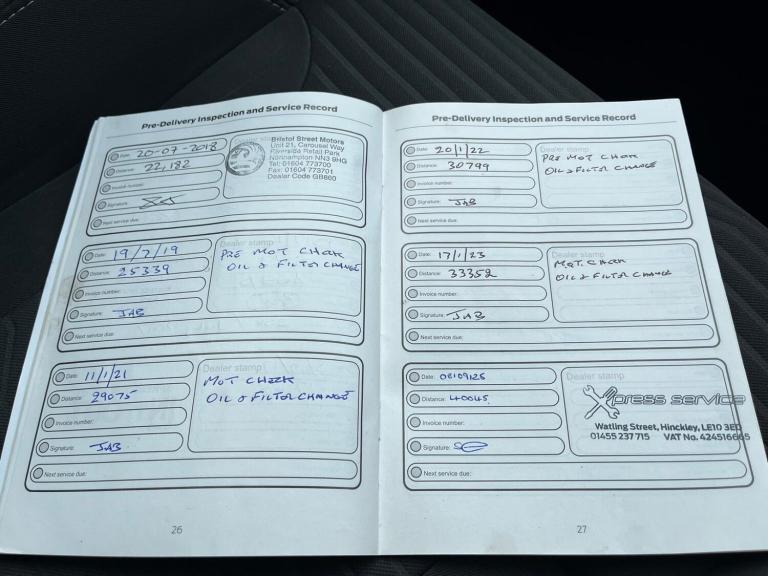 Pre-Delivery Inspection and Service Record
Date: 20-07-2018
Distance: 22,182
Invoice number:
Signature:
Next service due:
Bristol Street Motors
Unit 21, Carousel Way
Riverside Retail Park
Northampton NN3 9HG
Tel: 01604 773700
Fax: 01604 773701
Dealer Code GB860
Date: 19/2/19
Distance: 25339
Invoice number:
Signature: JAB
Next service due:
Dealer stamp
PRE MOT CHECK
OIL & FILTER CHANGE
Date: 11/1/21
Distance: 29075
Invoice number:
Signature: JAB
Next service due:
Dealer stamp
MOT CHECK
OIL & FILTER CHANGE
26
Pre-Delivery Inspection and Service Record
Date: 20/1/22
Distance: 30799
Invoice number:
Signature: JAB
Next service due:
Dealer stamp
PRE MOT CHECK
OIL & FILTER CHANGE
Date: 17/1/23
Distance: 33352
Invoice number:
Signature: JAB
Next service due:
Dealer stamp
MOT. CHECK
OIL & FILTER CHANGE
Date: 08/09/25
Distance: 40045
Invoice number:
Signature:
Next service due:
Dealer stamp
Xpress service
Watling Street, Hinckley, LE10 3ED
01455 237 715 VAT No. 424516665
27